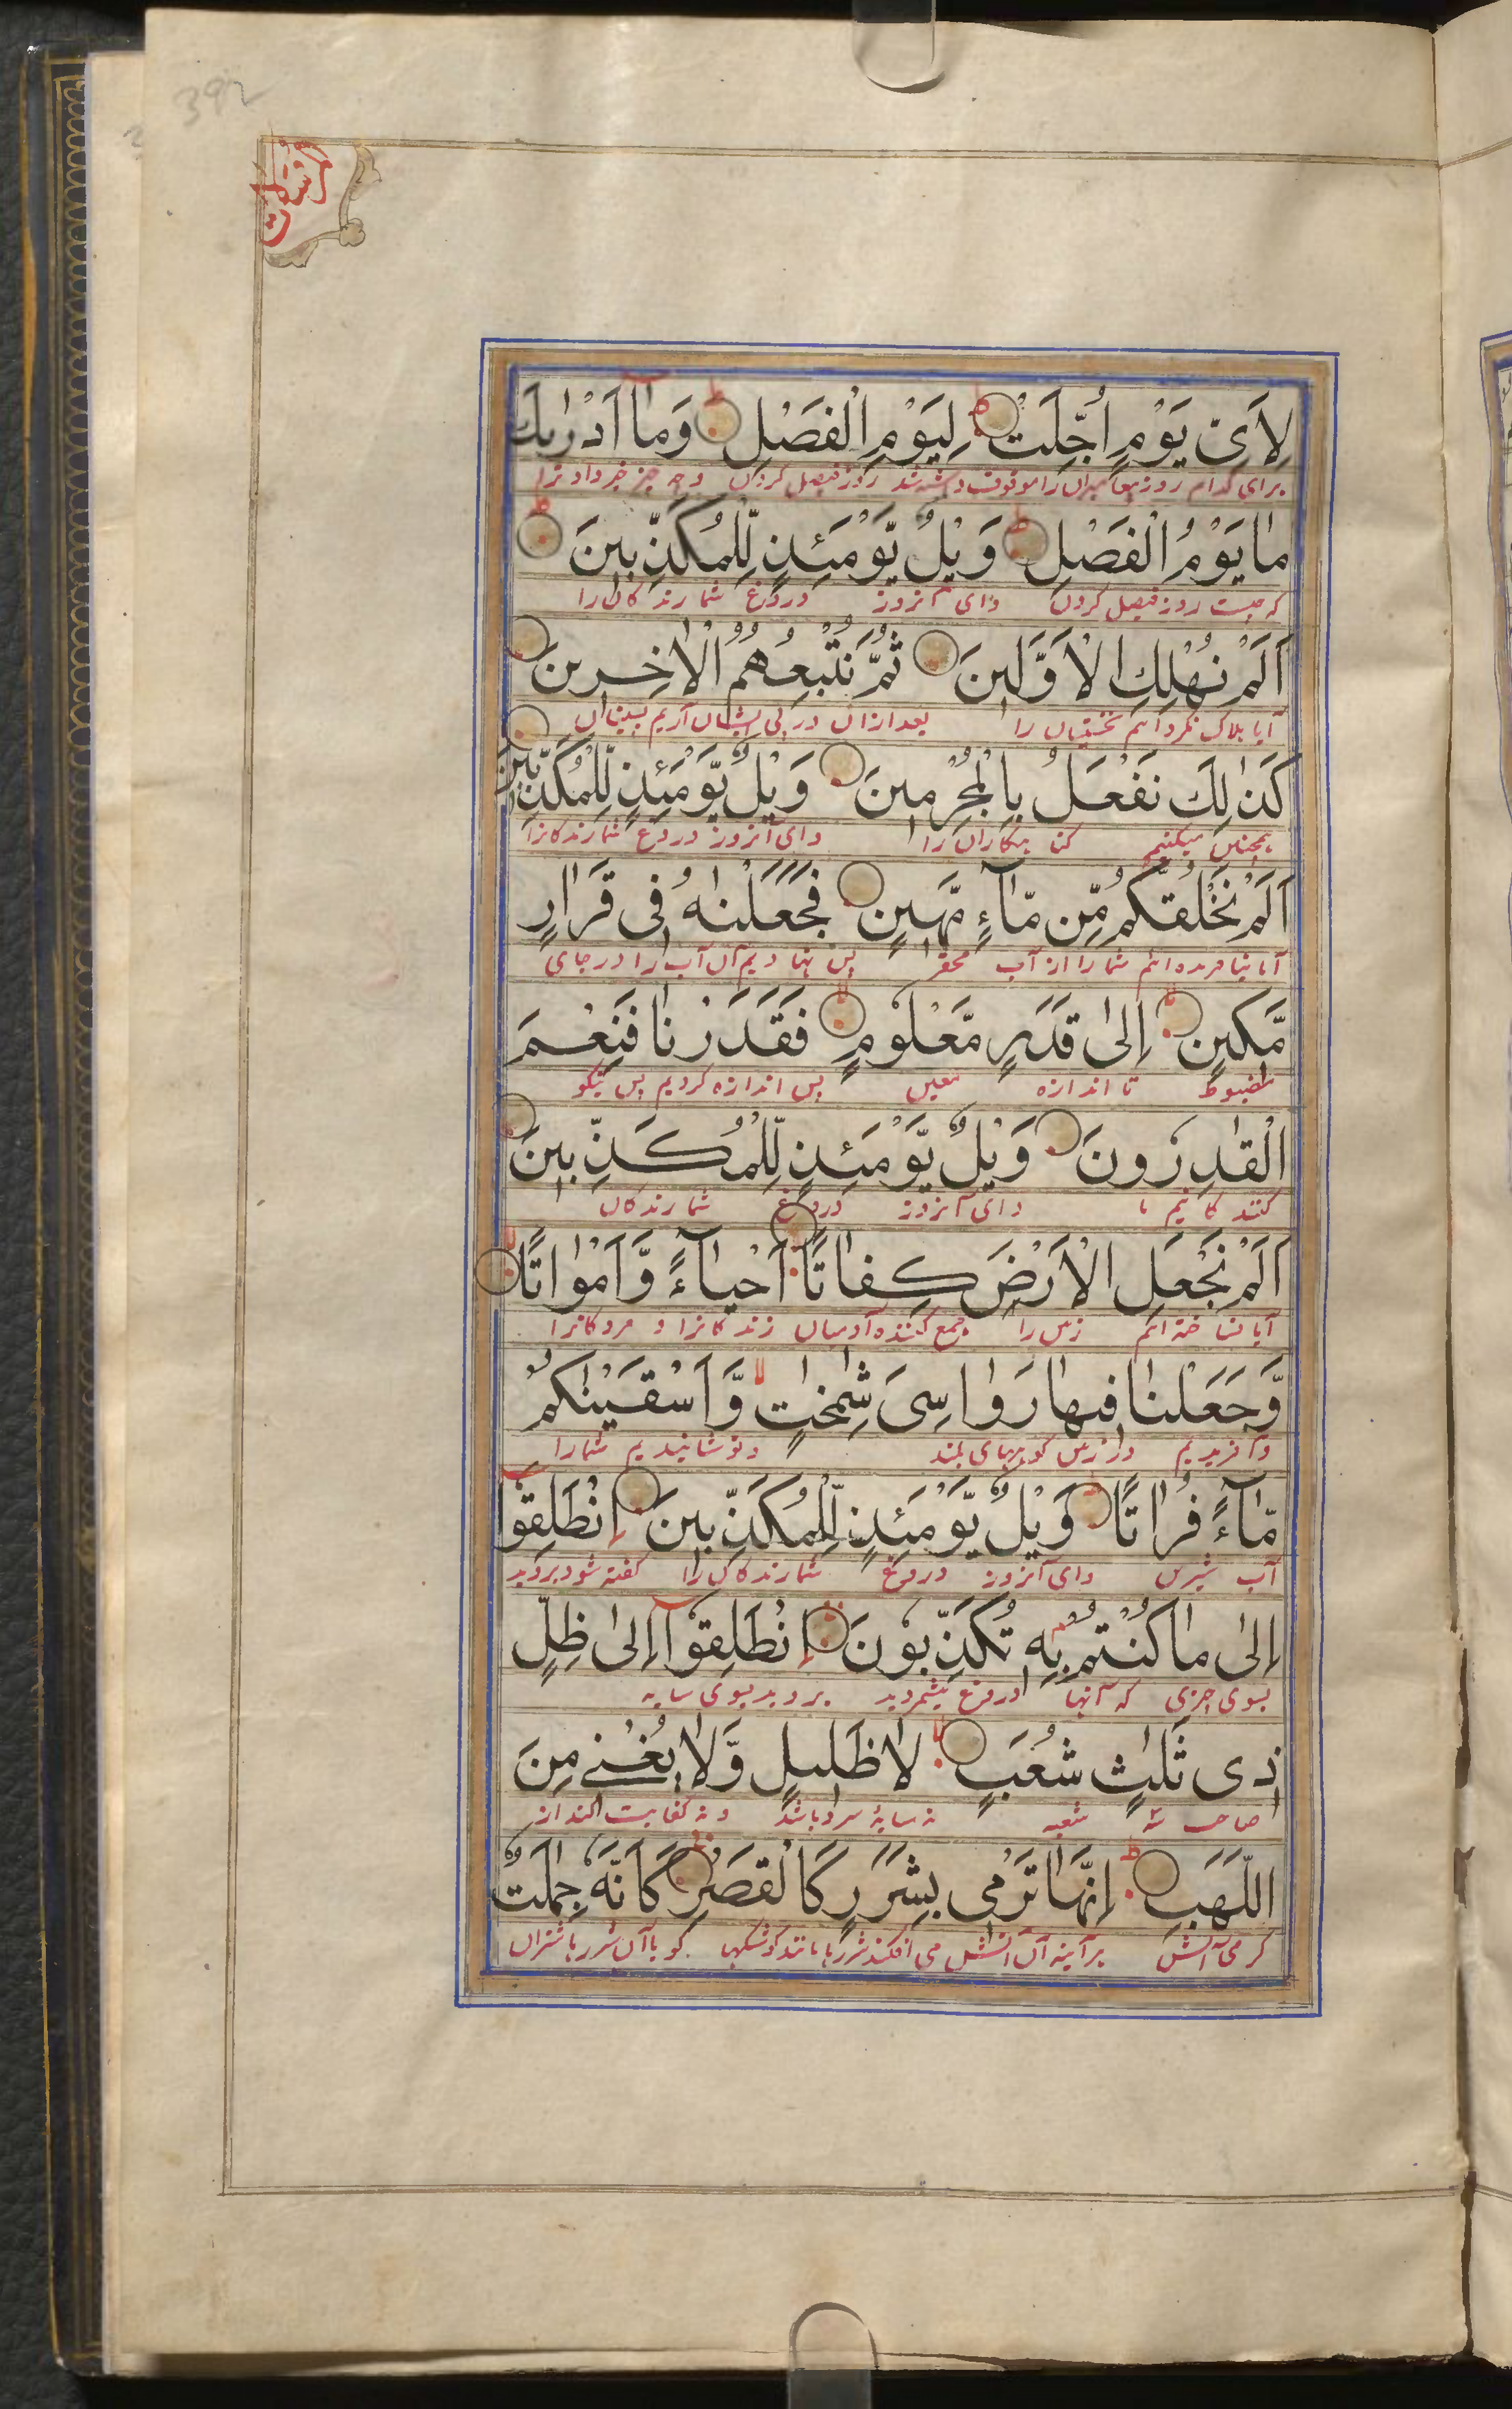 392
المرسلات
لِاَىِّ يَوْمٍ اُجِّلَتْ لِيَوْمِ الْفَصْلِ وَمَاۤ اَدْرٰىكَ
برای کدام روز پیغامبران را موقوف داشته شد روز فیصل کردن وچه چیز خبر داد ترا
مَا يَوْمُ الْفَصْلِ وَيْلٌ يَّوْمَئِذٍ لِّلْمُكَذِّبِيْنَ
که چیست روز فیصل کردن وای آنروز دروغ شمارندکان را
اَلَمْ نُهْلِكِ الْاَوَّلِيْنَ ثُمَّ نُتْبِعُهُمُ الْاٰخِرِيْنَ
آیا هلاک نکرده‌ایم نخستینان را بعد ازان در پی ایشان آریم پسینان
كَذٰلِكَ نَفْعَلُ بِالْمُجْرِمِيْنَ وَيْلٌ يَّوْمَئِذٍ لِّلْمُكَذِّبِيْنَ
همچنین میکنیم کنا هکاران را وای آنروز دروغ شمارندکانرا
اَلَمْ نَخْلُقْكُّمْ مِّنْ مَّاۤءٍ مَّهِيْنٍ فَجَعَلْنٰهُ فِى قَرَارٍ
آیا نیافریده‌ایم شما را از آب محقر پس نهادیم آن آب را در جای
مَّكِيْنٍ اِلٰى قَدَرٍ مَّعْلُوْمٍ فَقَدَرْنَا فَنِعْمَ
مضبوط تا اندازه معین پس اندازه کردیم پس نیکو
الْقٰدِرُوْنَ وَيْلٌ يَّوْمَئِذٍ لِّلْمُكَذِّبِيْنَ
کنند کانیم ما وای آنروز دروغ شمارندکان
اَلَمْ نَجْعَلِ الْاَرْضَ كِفَاتًا اَحْيَاۤءً وَّاَمْوَاتًا
آیا نساخته‌ایم زمین را جمع کننده آدمیان زندکانرا و مردکانرا
وَّجَعَلْنَا فِيْهَا رَوَاسِىَ شٰمِخٰتٍ وَّاَسْقَيْنٰكُمْ
وآفریدیم در زمین کوههای بلند ونوشانیدیم شمارا
مَّاۤءً فُرَاتًا وَيْلٌ يَّوْمَئِذٍ لِّلْمُكَذِّبِيْنَ اِنْطَلِقُوْا
آب شیرین وای آنروز دروغ شمارندکان را کفته شود بروید
اِلٰى مَا كُنْتُمْ بِهٖ تُكَذِّبُوْنَ اِنْطَلِقُوْاۤ اِلٰى ظِلٍّ
بسوی چیزی که آنها دروغ میشمردید بروید بسوی سایه
ذِى ثَلٰثِ شُعَبٍ لَا ظَلِيْلٍ وَّلَا يُغْنِىْ مِنَ
صاحب سه شعبه نه سایهٔ سرد باشد ونه کفایت کند از
اللَّهَبِ اِنَّهَا تَرْمِى بِشَرَرٍ كَالْقَصْرِ كَاَنَّهٗ جِمٰلَتٌ
کرمی آتش هر آینه آن آتش می افکند شررها مانند کوشکها کویا آن شررها شتران